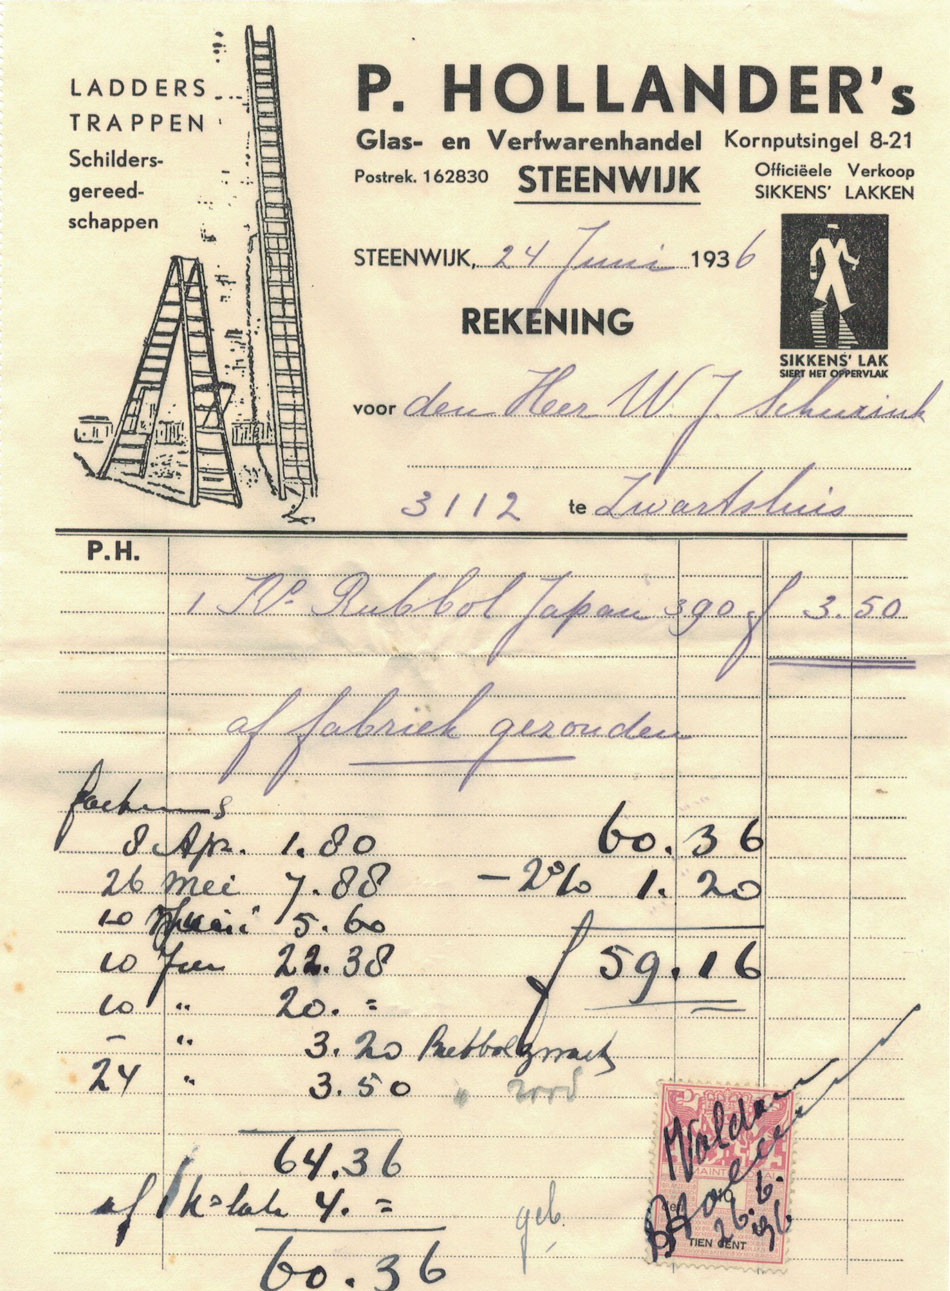 LADDERS
TRAPPEN
Schilders-
gereed-
schappen
P. HOLLANDER's
Glas- en Verfwarenhandel Kornputsingel 8-21
Postrek. 162830 STEENWIJK Officiëele Verkoop
SIKKENS' LAKKEN
STEENWIJK, 24 Juni 1936
REKENING
SIKKENS' LAK
SIERT HET OPPERVLAK
voor den Heer W. J. Schurink
3112 te Zwartsluis
P.H.
1 Ko Rubbol Japan 390 f 3.50
af fabriek gezonden
8 Apr. 1.80
26 Mei 7.88
10 Juni 5.60
10 Jun 22.38
10 " 20. =
- " 3.20 Rubbolzwart
24 " 3.50 " rood
64.36
af 1 k= lak 4. =
60.36
60.36
- 2% 1.20
f 59.16
geb.
Voldaan
26.6.36
TIEN CENT